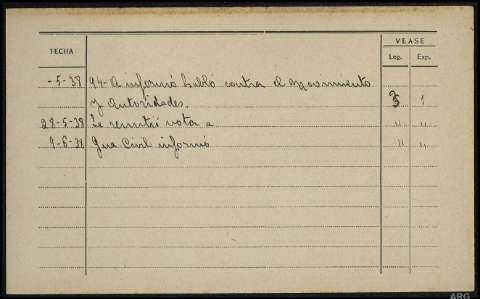 FECHA VEASE
Leg. Exp.
-5-38 94-A informó habló contra el Movimiento
y Autoridades. 3 1
28-5-38 Se remitió nota a " "
9-6-38 Gua Civil informó " "
ARG